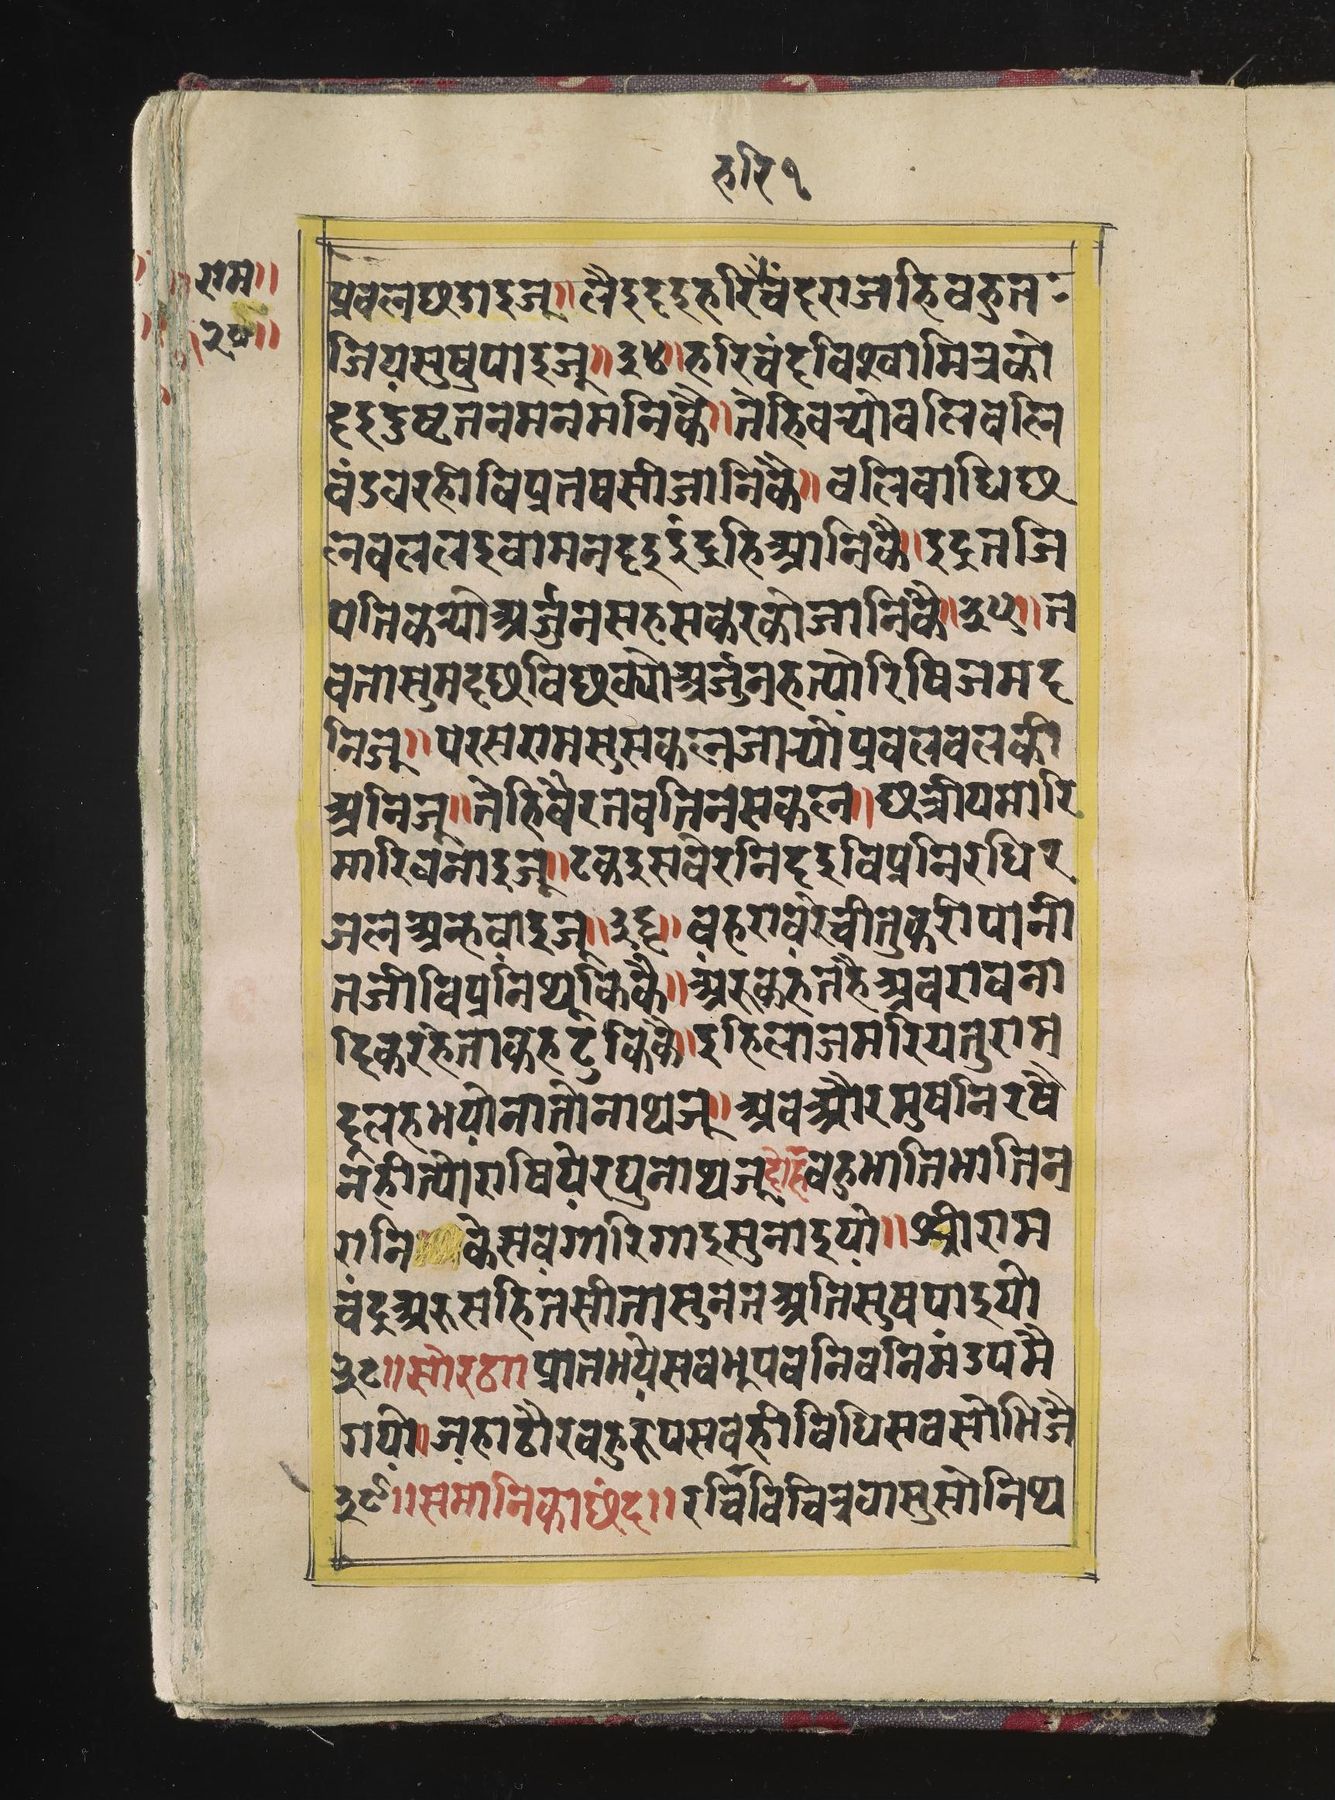 हरि१
राम॥
२७॥
प्रवलछडाइजू॥लैइदइहरिचंदराजहिवहुत
जियसुषुपाइजू॥३४॥हरिचंदविश्वामित्रको
दइदुष्टतनमनमनिकै॥तेहिवर्‍योवलिवलि
वंडवरहीविप्रतपसीजानिकै॥वलिवाधिछ
लवललइवामनदइइंद्रहिआनिकै॥इंद्रतजि
पतिकर्‍योअर्जुनसहसकरकोजानिकै॥३५॥त
वतासुमदछविछक्योअर्जुनहत्योरिषिजमद
निजू॥परसरामसुसकलजार्‍योप्रवलवलकी
अनिजू॥तेहिवैरतवतिनसकल॥छत्रीयमारि
मारिवनाइजू॥टकइसवेरनिदइविप्रनिरुधिर
जलअन्हवाइजू॥३६॥वहरावरेचीतुकरीपानी
तजीविप्रनिथूकिकै॥अरुकहतहैअवरावना
दिकरहेताकहढुकिकै॥इहिलाजमरियतुराम
दूलहभयोनातोनाथजू॥अवऔरमुषनिरषै
नहीत्योराषियेरघुनाथजू दोहा वहुभातिभातिन
रानि केसवगारिगाइसुनाइयो॥श्रीराम
चंद्रअरुसहितसीतासुनतअतिसुषपाइयो
३८॥सोरठा॥प्रातभयेसवभूपवनिवनिमंडपमै
गयो॥जहाठौरवहुरूपसवहीविधिसवसोभिजै
३९॥समानिकाछंद॥रचिविचित्रवाससोनिथ